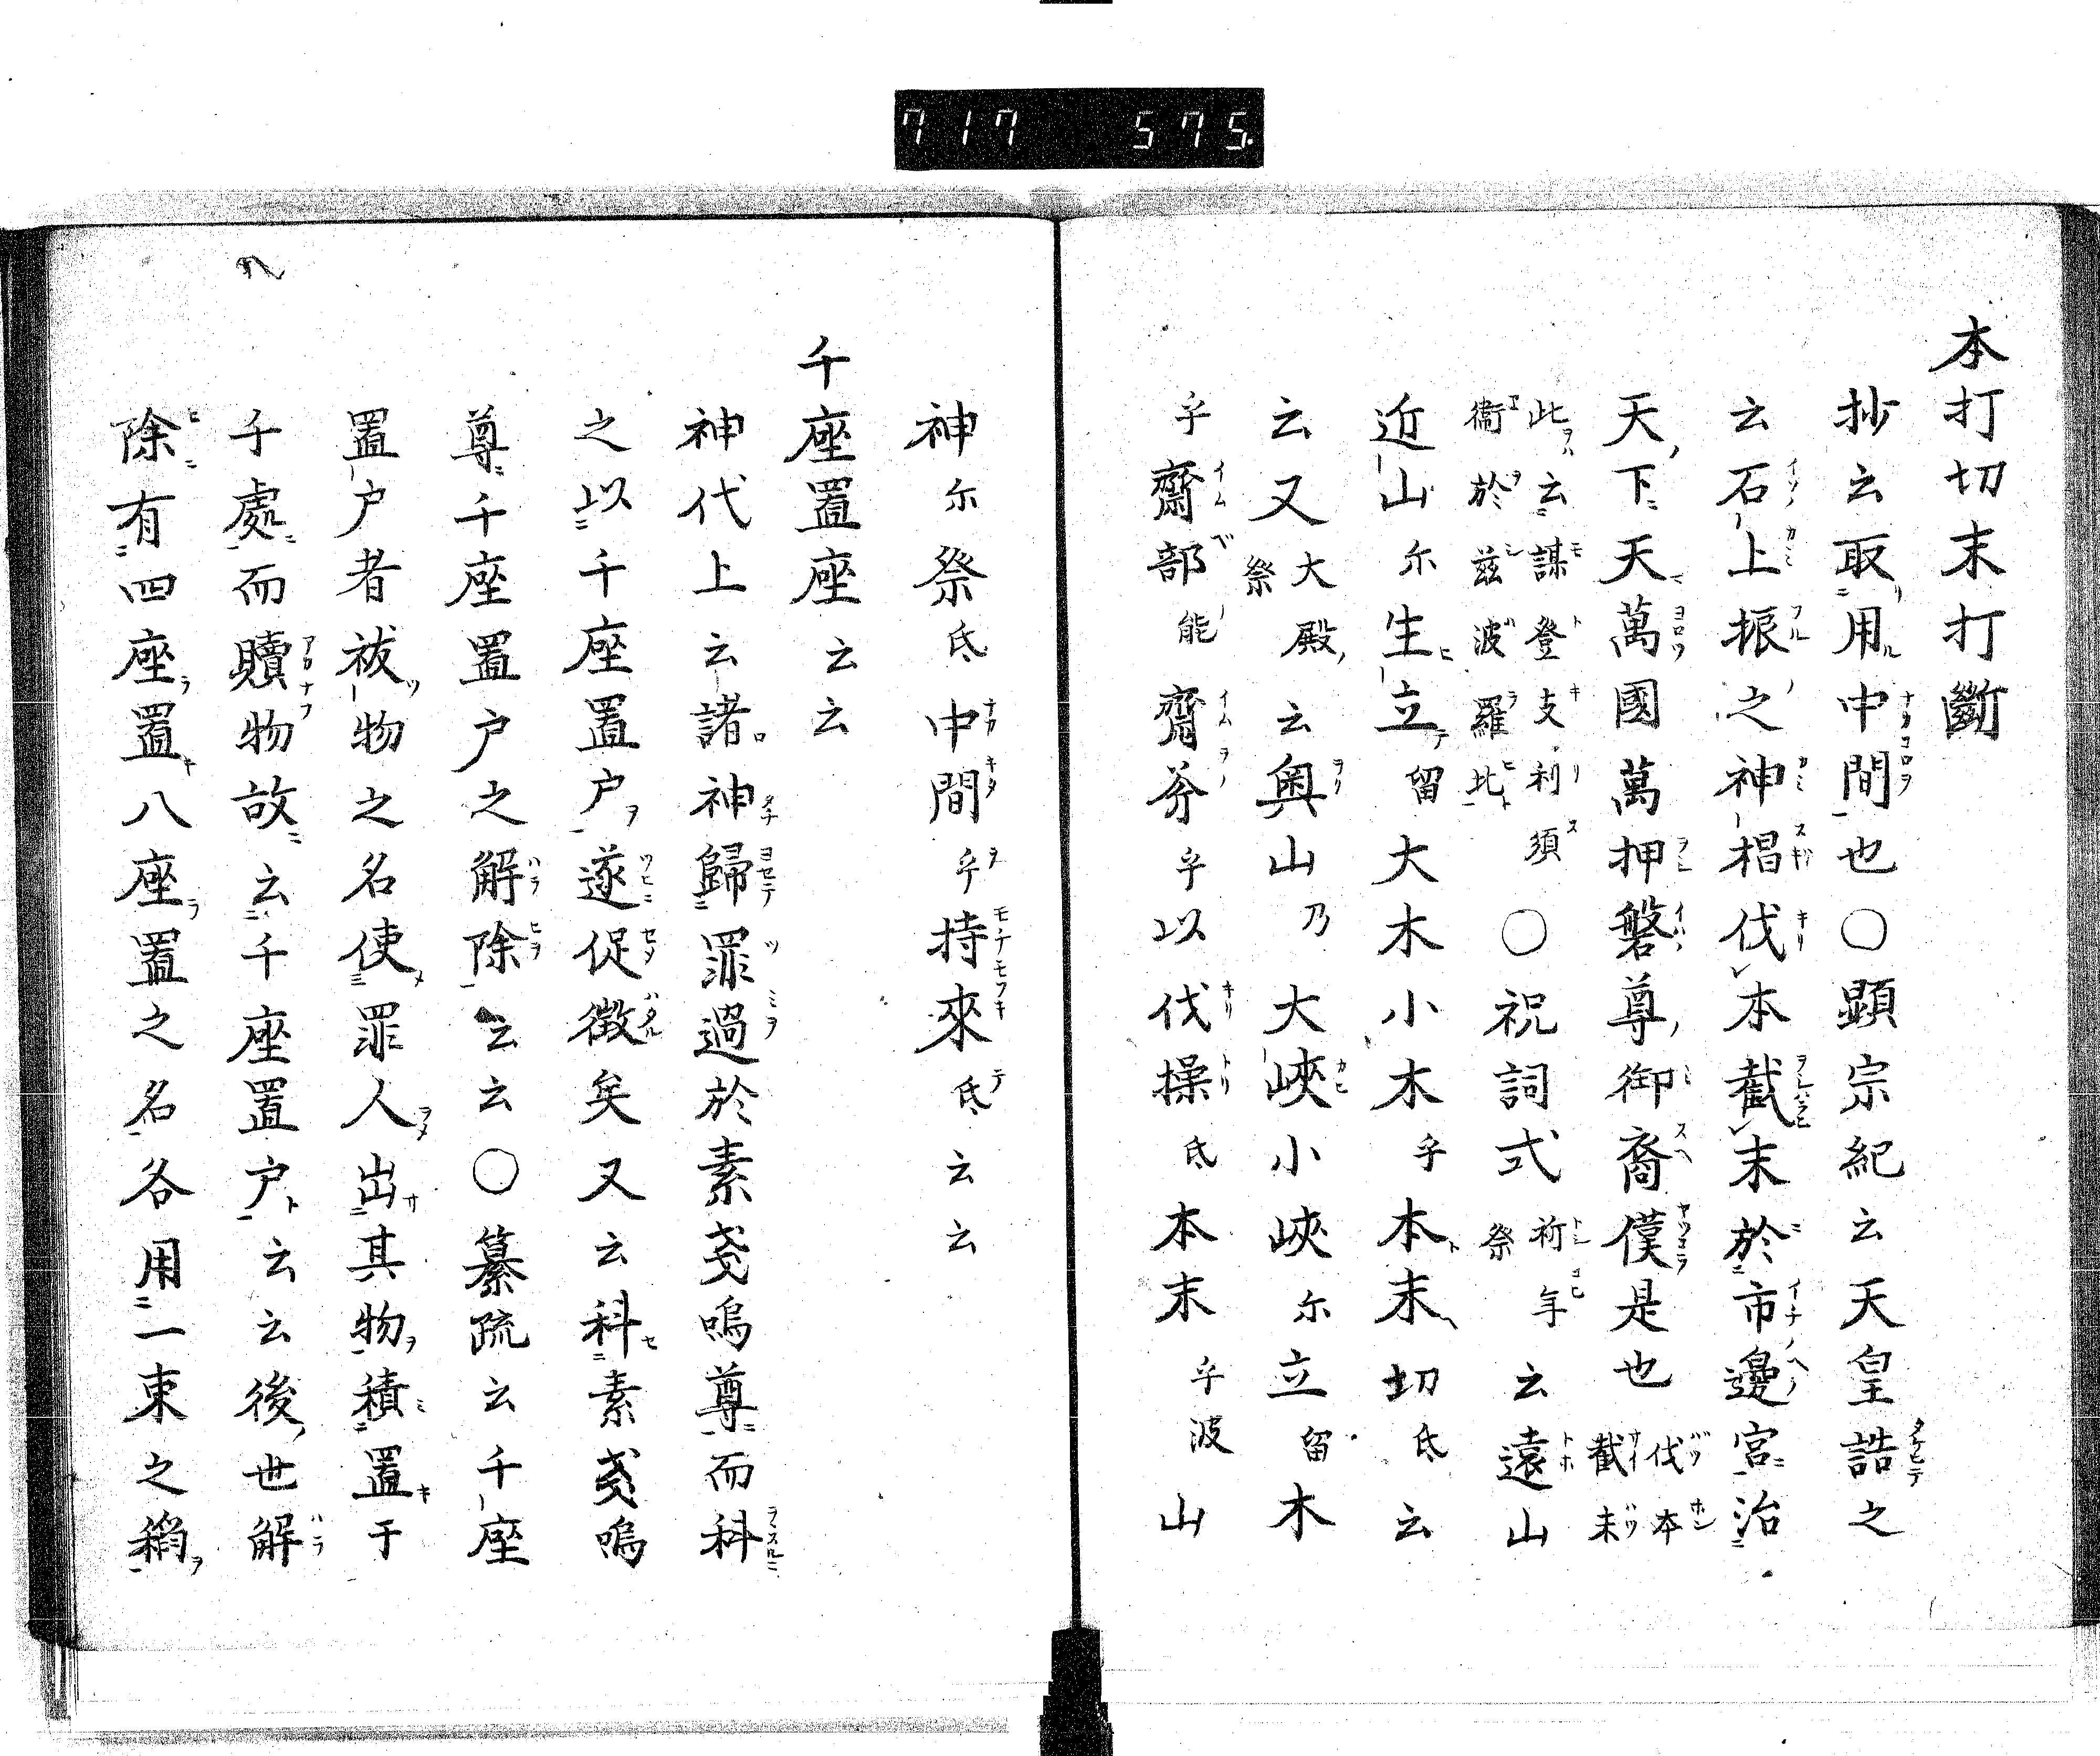 717 575
本打切末打斷
抄云取用中間也〇顕宗紀云天皇誥之
云石上振之神椙伐本截末於市邊宮治
天下天萬國萬押磐尊御裔僕是也伐本截末
此云謀登支利須衞於茲波羅比〇祝詞式祈年祭云遠山
近山尓生立留大木小木乎本末切氐云
云又大殿祭云奥山乃大峽小峽尓立留木
乎齋部能齋斧乎以伐操氐本末乎波山
神尓祭氐中間乎持來氐云云
千座置座云云
神代上云諸神歸罪過於素戔嗚尊而科
之以千座置户遂促徴矣又云科素戔嗚
尊千座置户之解除云云〇纂疏云千座
置户者祓物之名使罪人出其物積置于
千處而贖物故云千座置户云云後世解
除有四座置八座置之名各用一束之稍